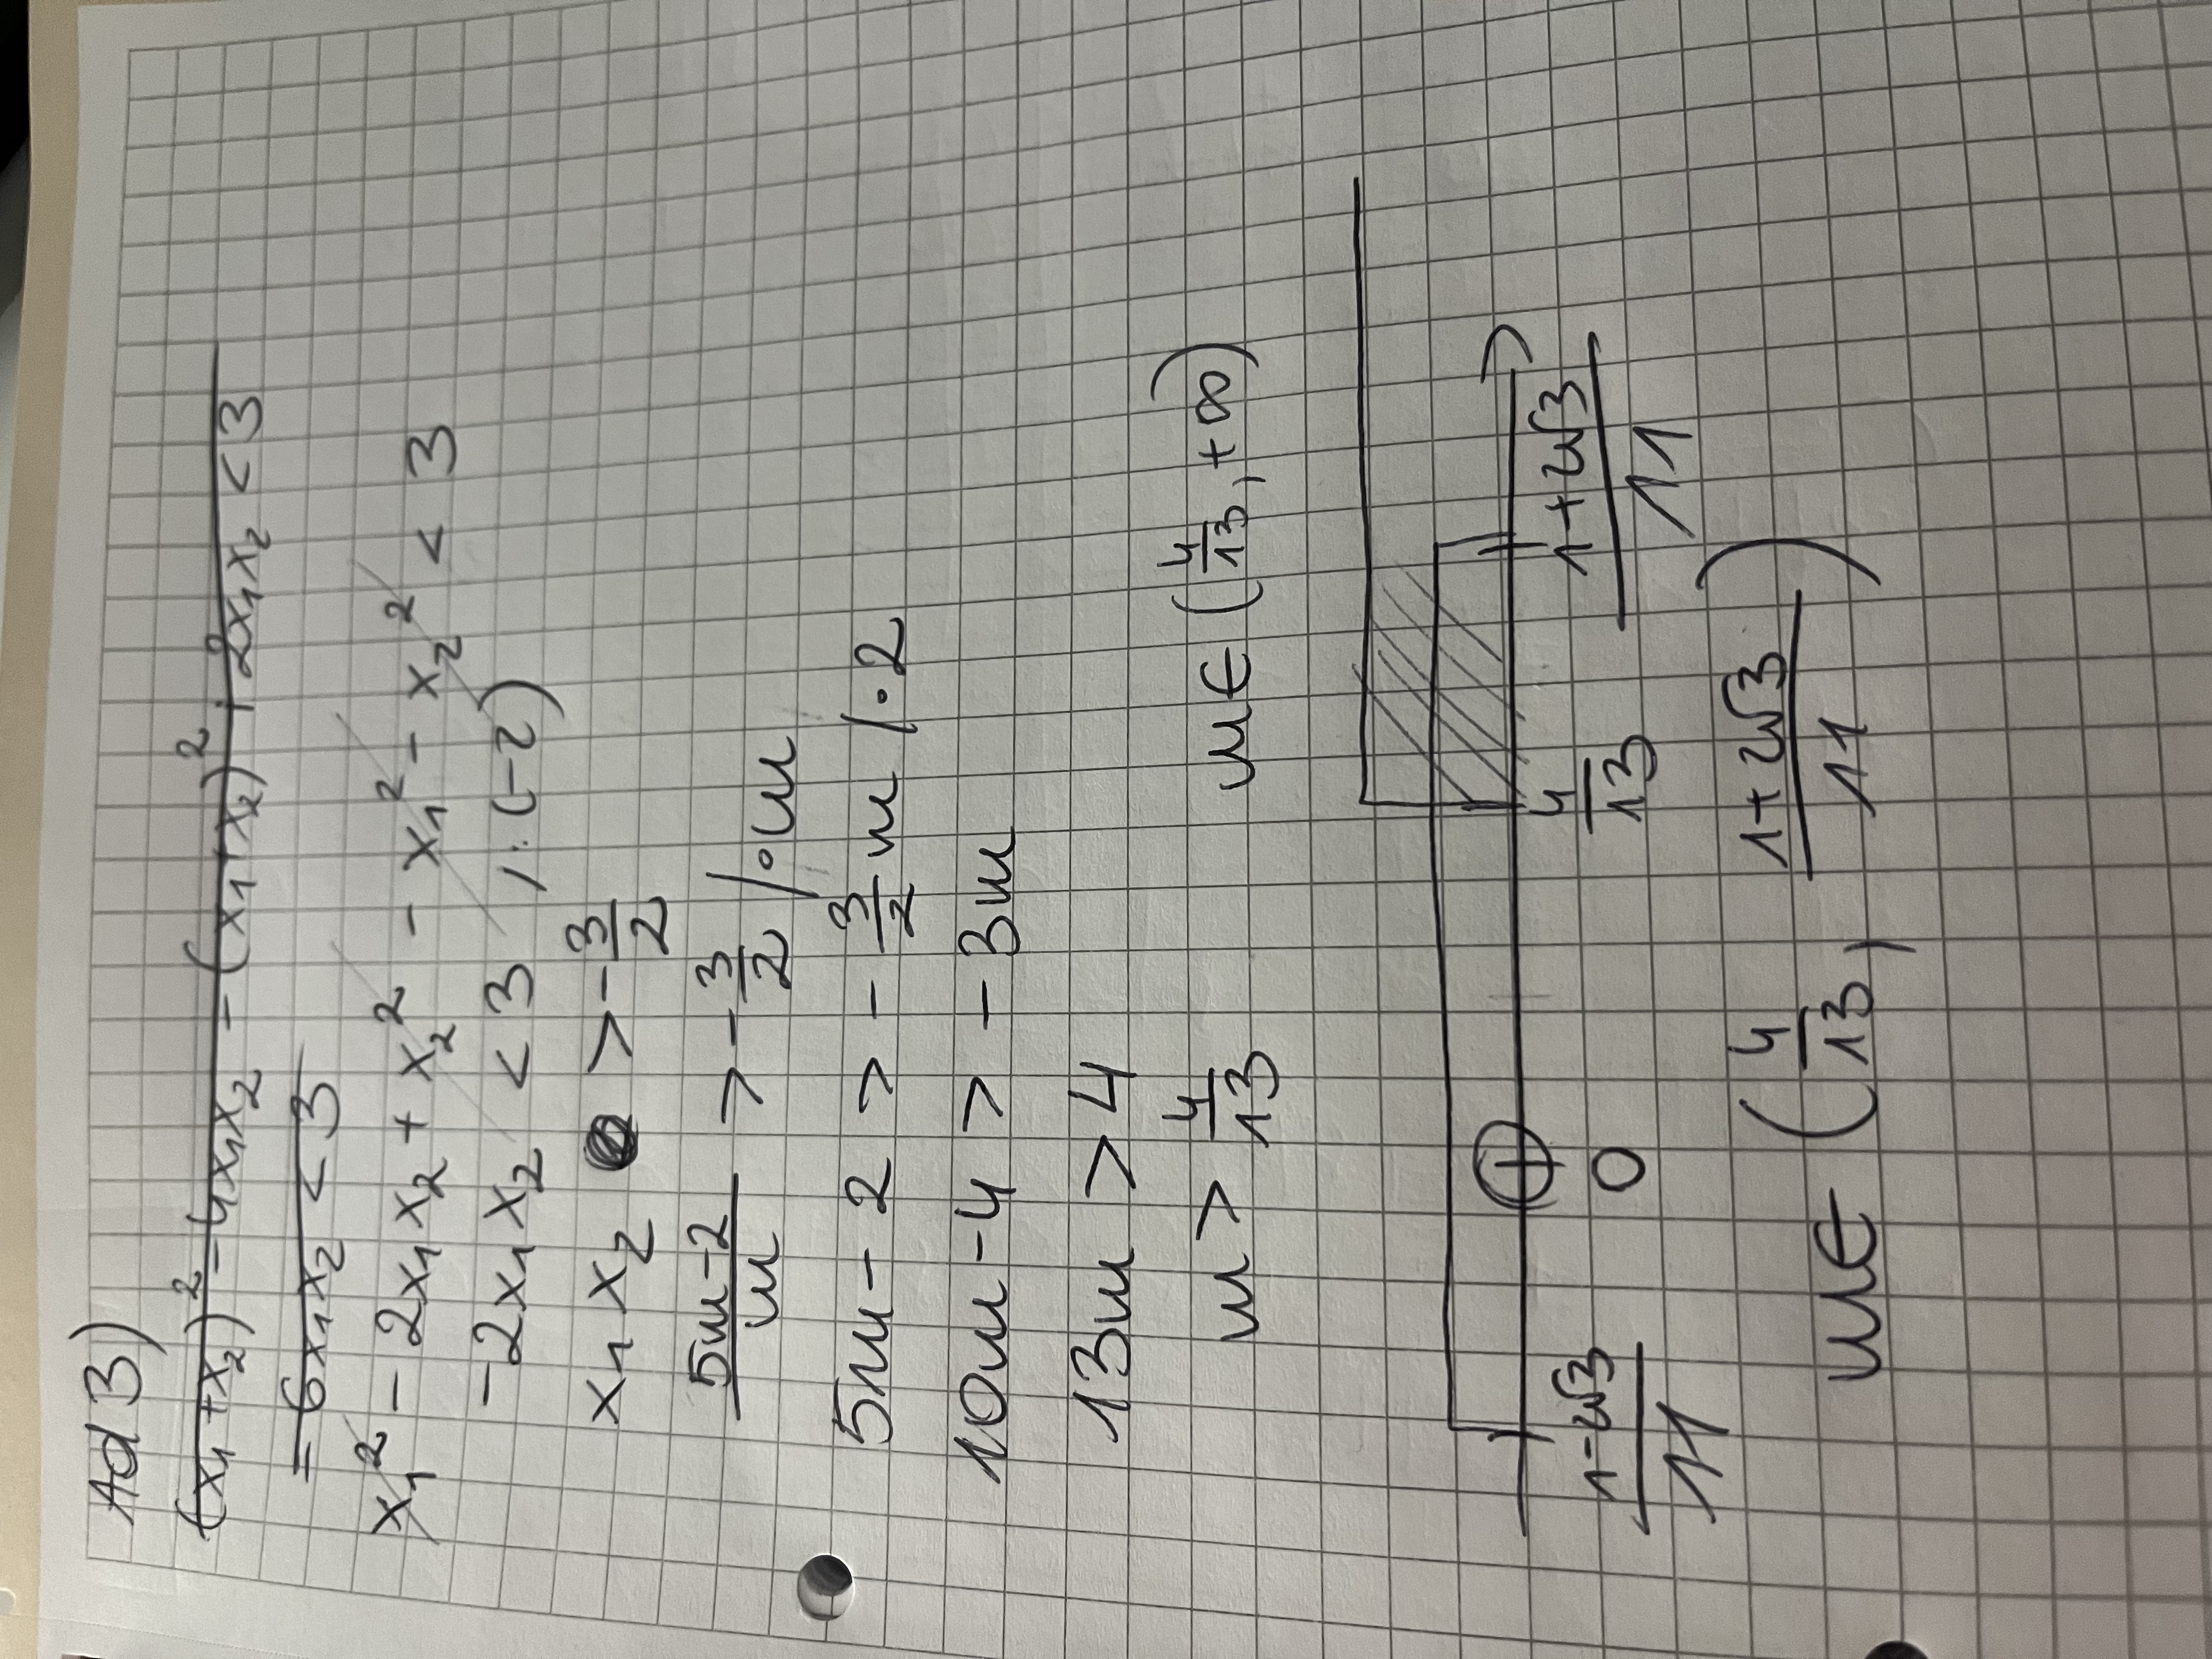 Ad B)
(x₁+x₂)² - 4x₁x₂ - (x₁+x₂)² + 2x₁x₂ < 3
= 6x₁x₂ < 3
x₁² - 2x₁x₂ + x₂² - x₁² - x₂² < 3
-2x₁x₂ < 3 /:(-2)
x₁x₂ > -3/2
(5m-2)/m > -3/2 /·m
5m - 2 > -3/2 m /·2
10m - 4 > -3m
13m > 4
m > 4/13 m∈(4/13, +∞)
(1-2√3)/11 0 4/13 (1+2√3)/11
m∈(4/13, (1+2√3)/11)